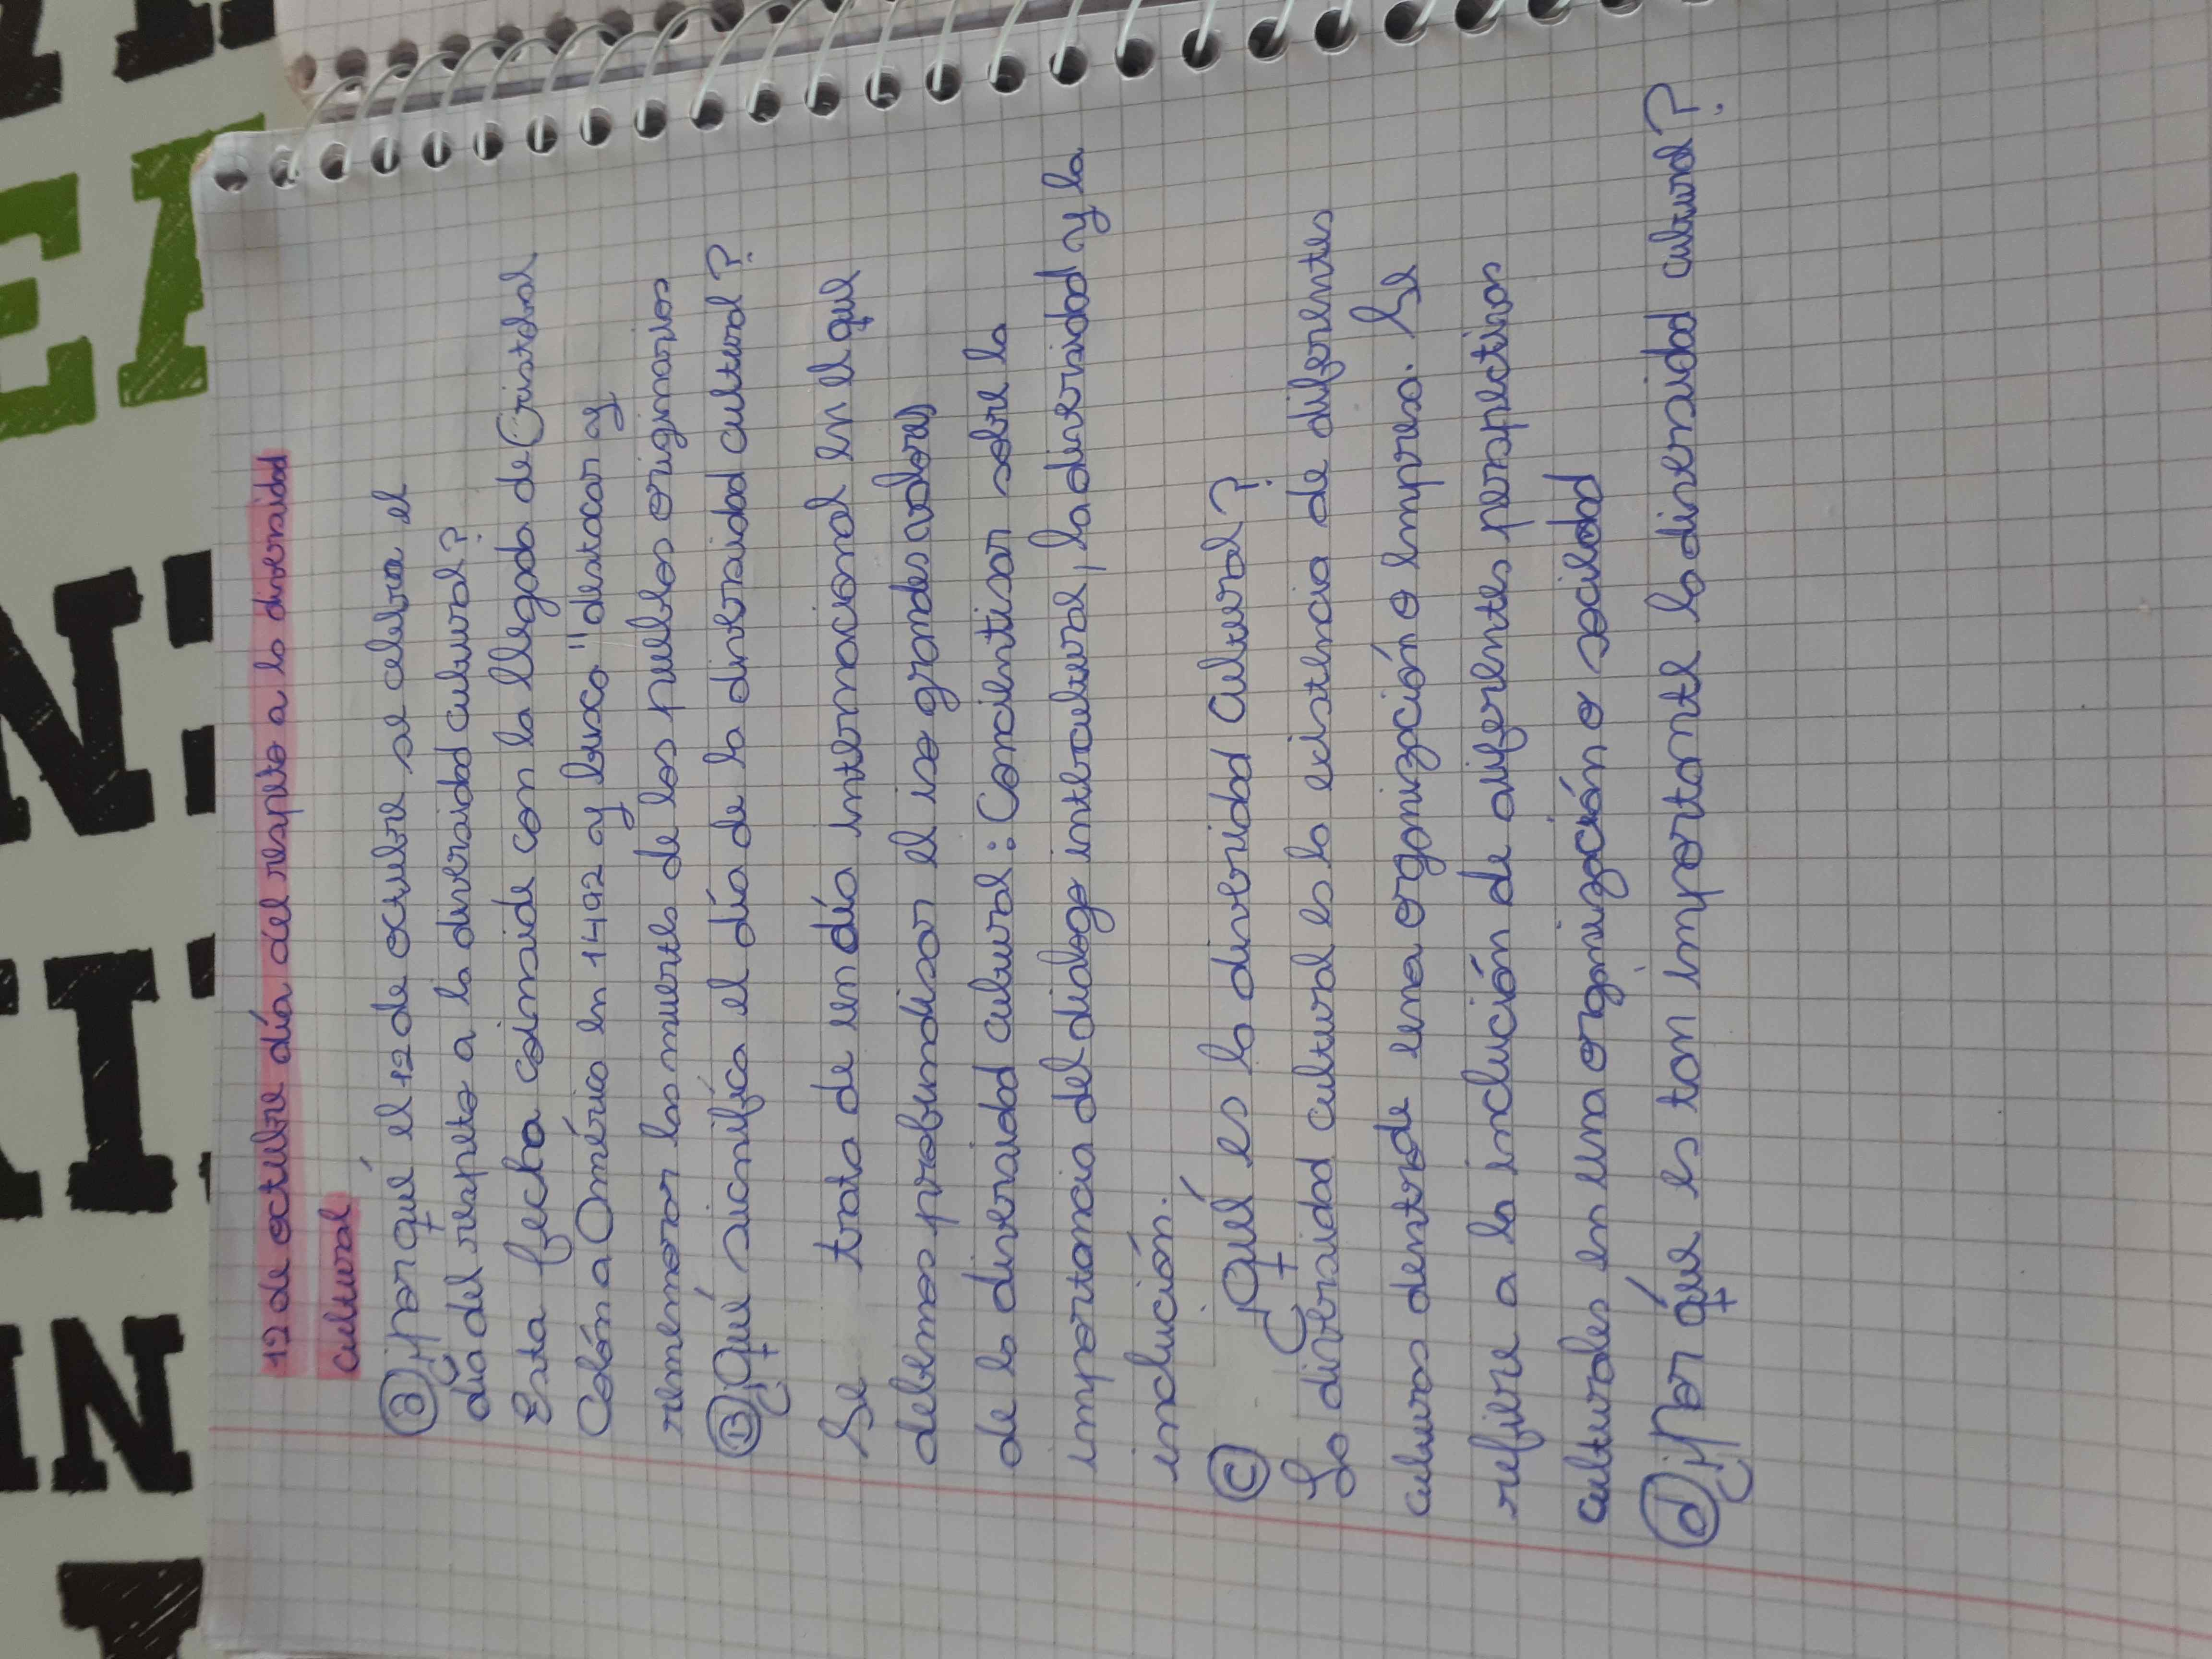 12 de octubre día del respeto a la diversidad
cultural
a) ¿por qué el 12 de ocubre se celebra el
día del respeto a la diversidad culural?
Esta fecha coinside con la llegada de Cristobal
Colón a América en 1492 y busca "destacar y
rememorar las muertes de los pueblos originarios
B) ¿Qué sicnifíca el día de la diversidad cultural?
Se trata de un día internacional en el que
debemos profundisar el iso grandes valores
de la diversidad culural: Concientisar sobre la
importancia del dialogo interculural, la diversidad y la
inclución.
C) ¿Qué es la diveridad culural?
La diversidad cultural es la existencia de diferentes
culuras dentro de una organización o empresa. Se
refiere a la inclución de diferentes perspectivas
culturales en una organización o socildad
d) ¿Por qué es tan importante la diversidad culural?